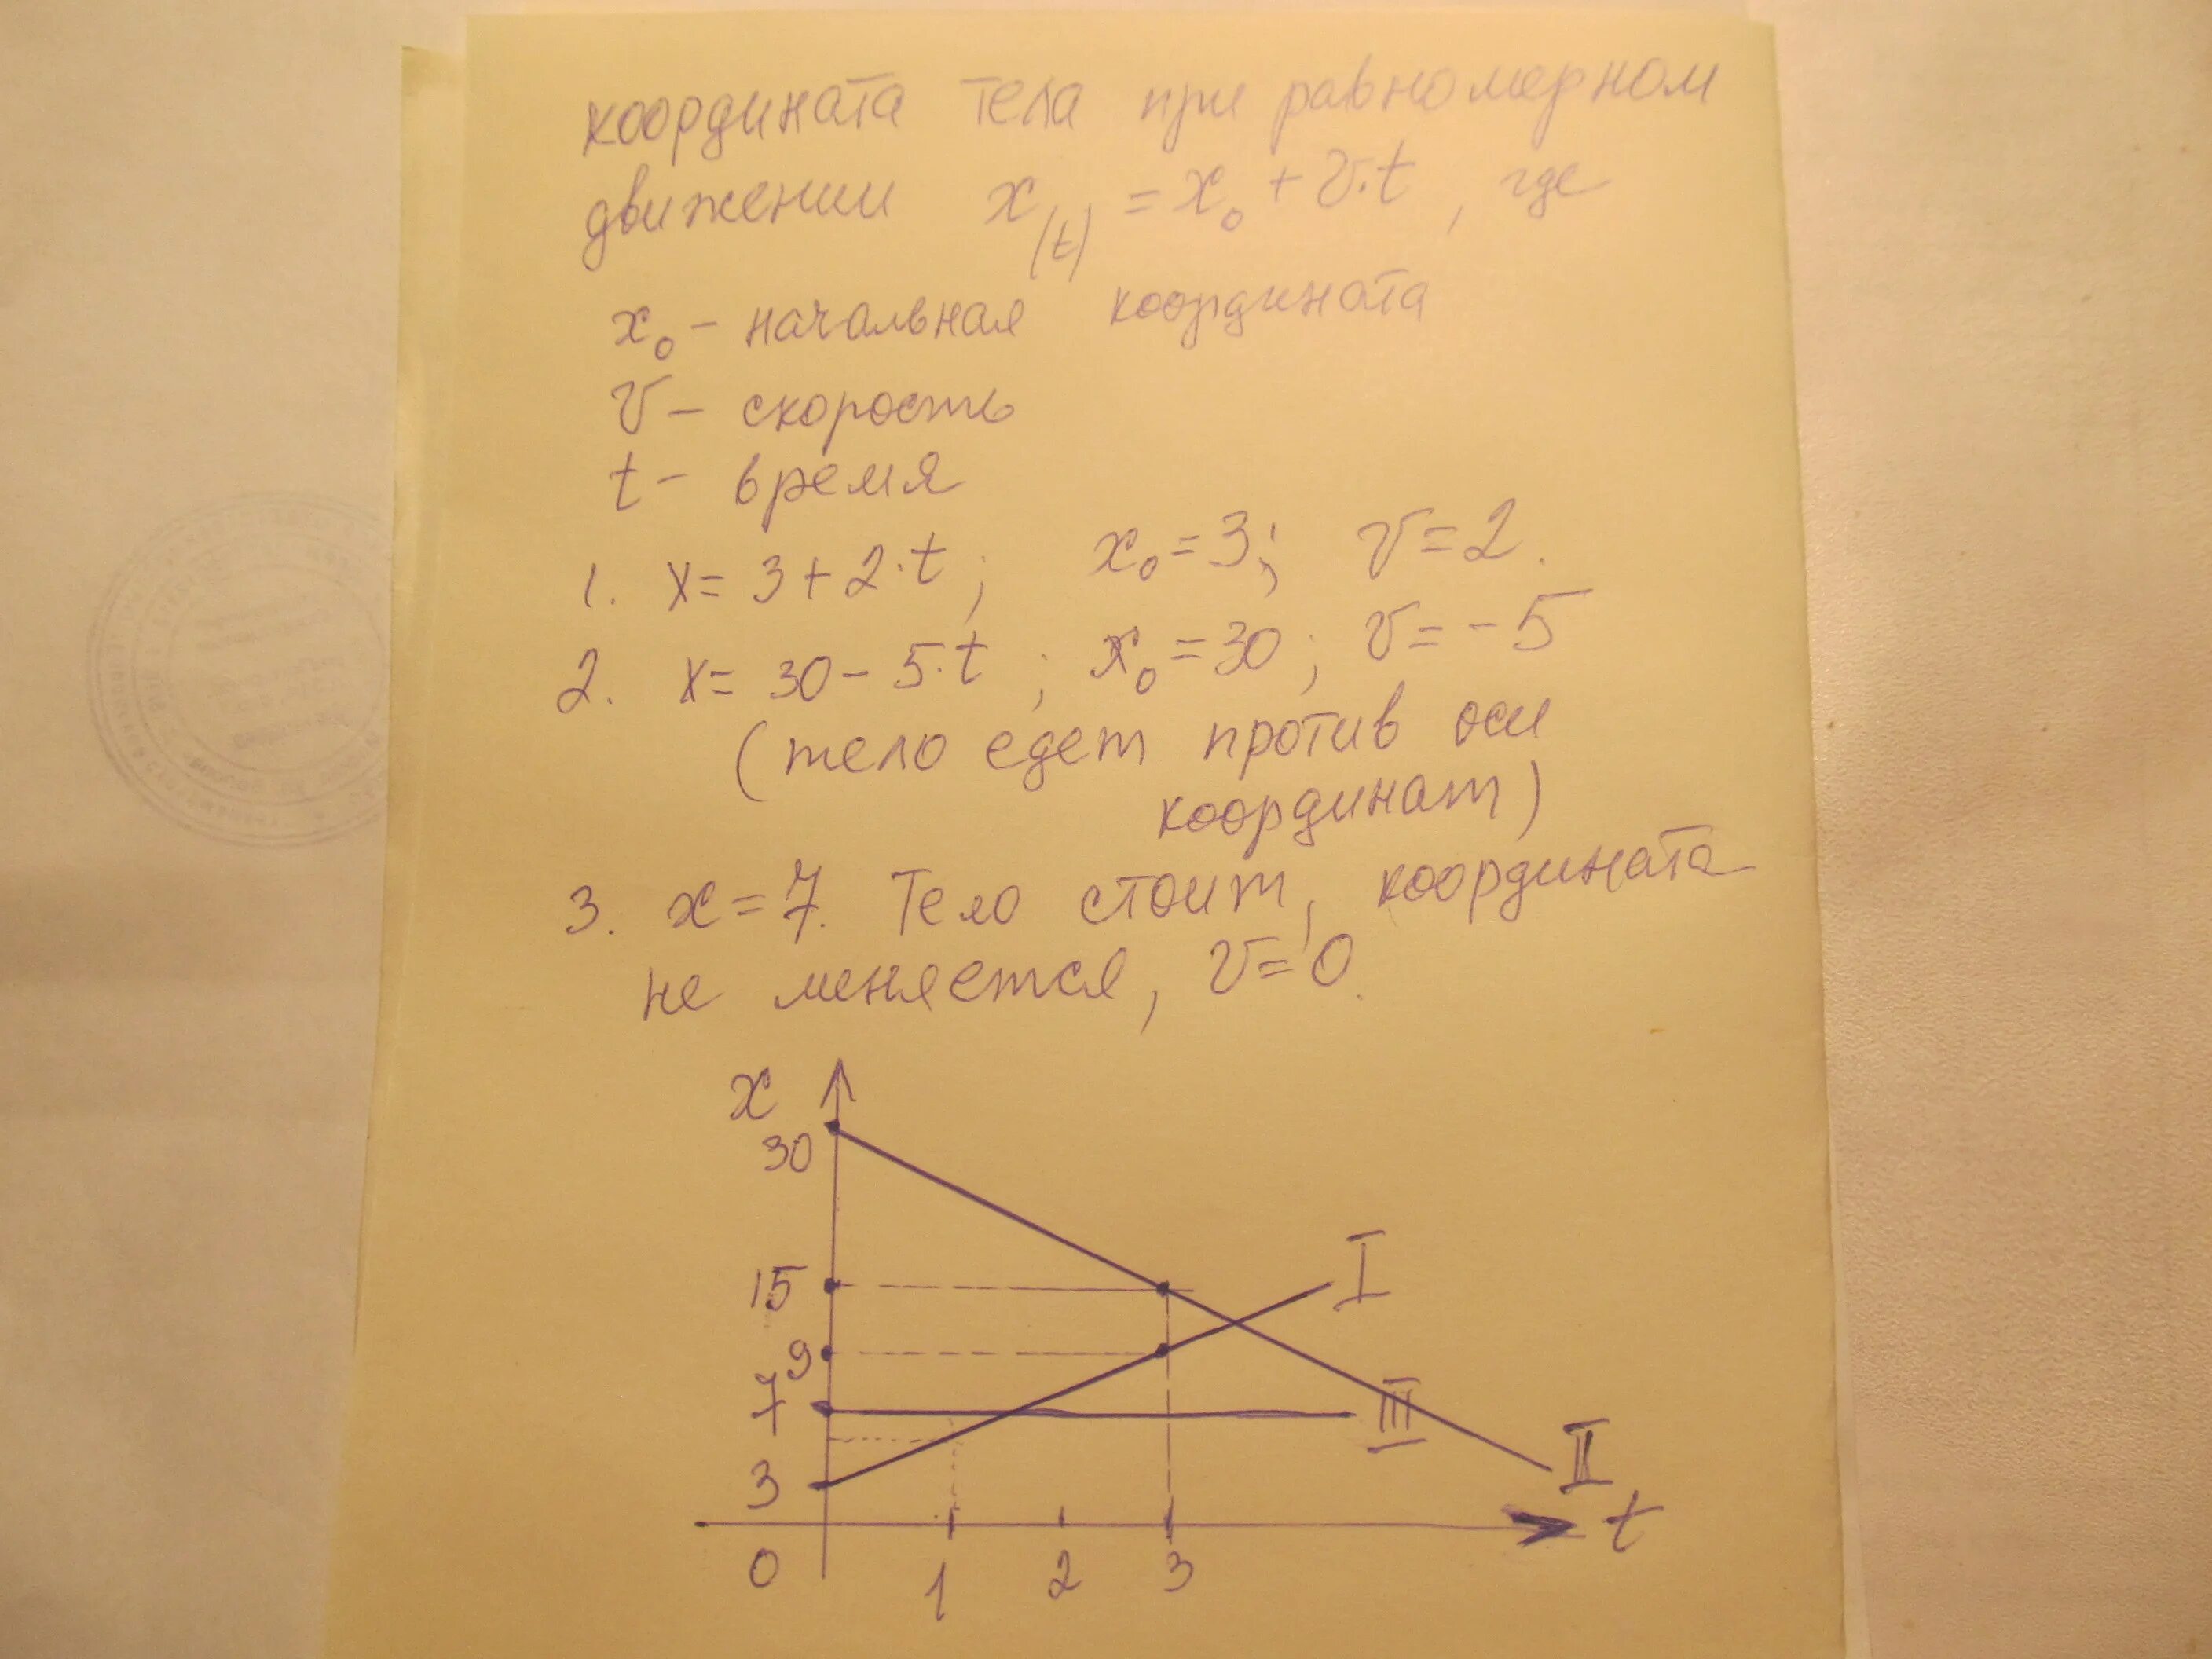 координата тела при равномерном
движении x(t) = x₀ + v·t, где
x₀ – начальная координата
v – скорость
t – время
1. x = 3 + 2·t; x₀ = 3; v = 2.
2. x = 30 – 5·t; x₀ = 30; v = – 5
(тело едет против оси
координат)
3. x = 7. Тело стоит, координата
не меняется, v = 0.
x
30
15
I
9
7
III
3
II
t
0 1 2 3